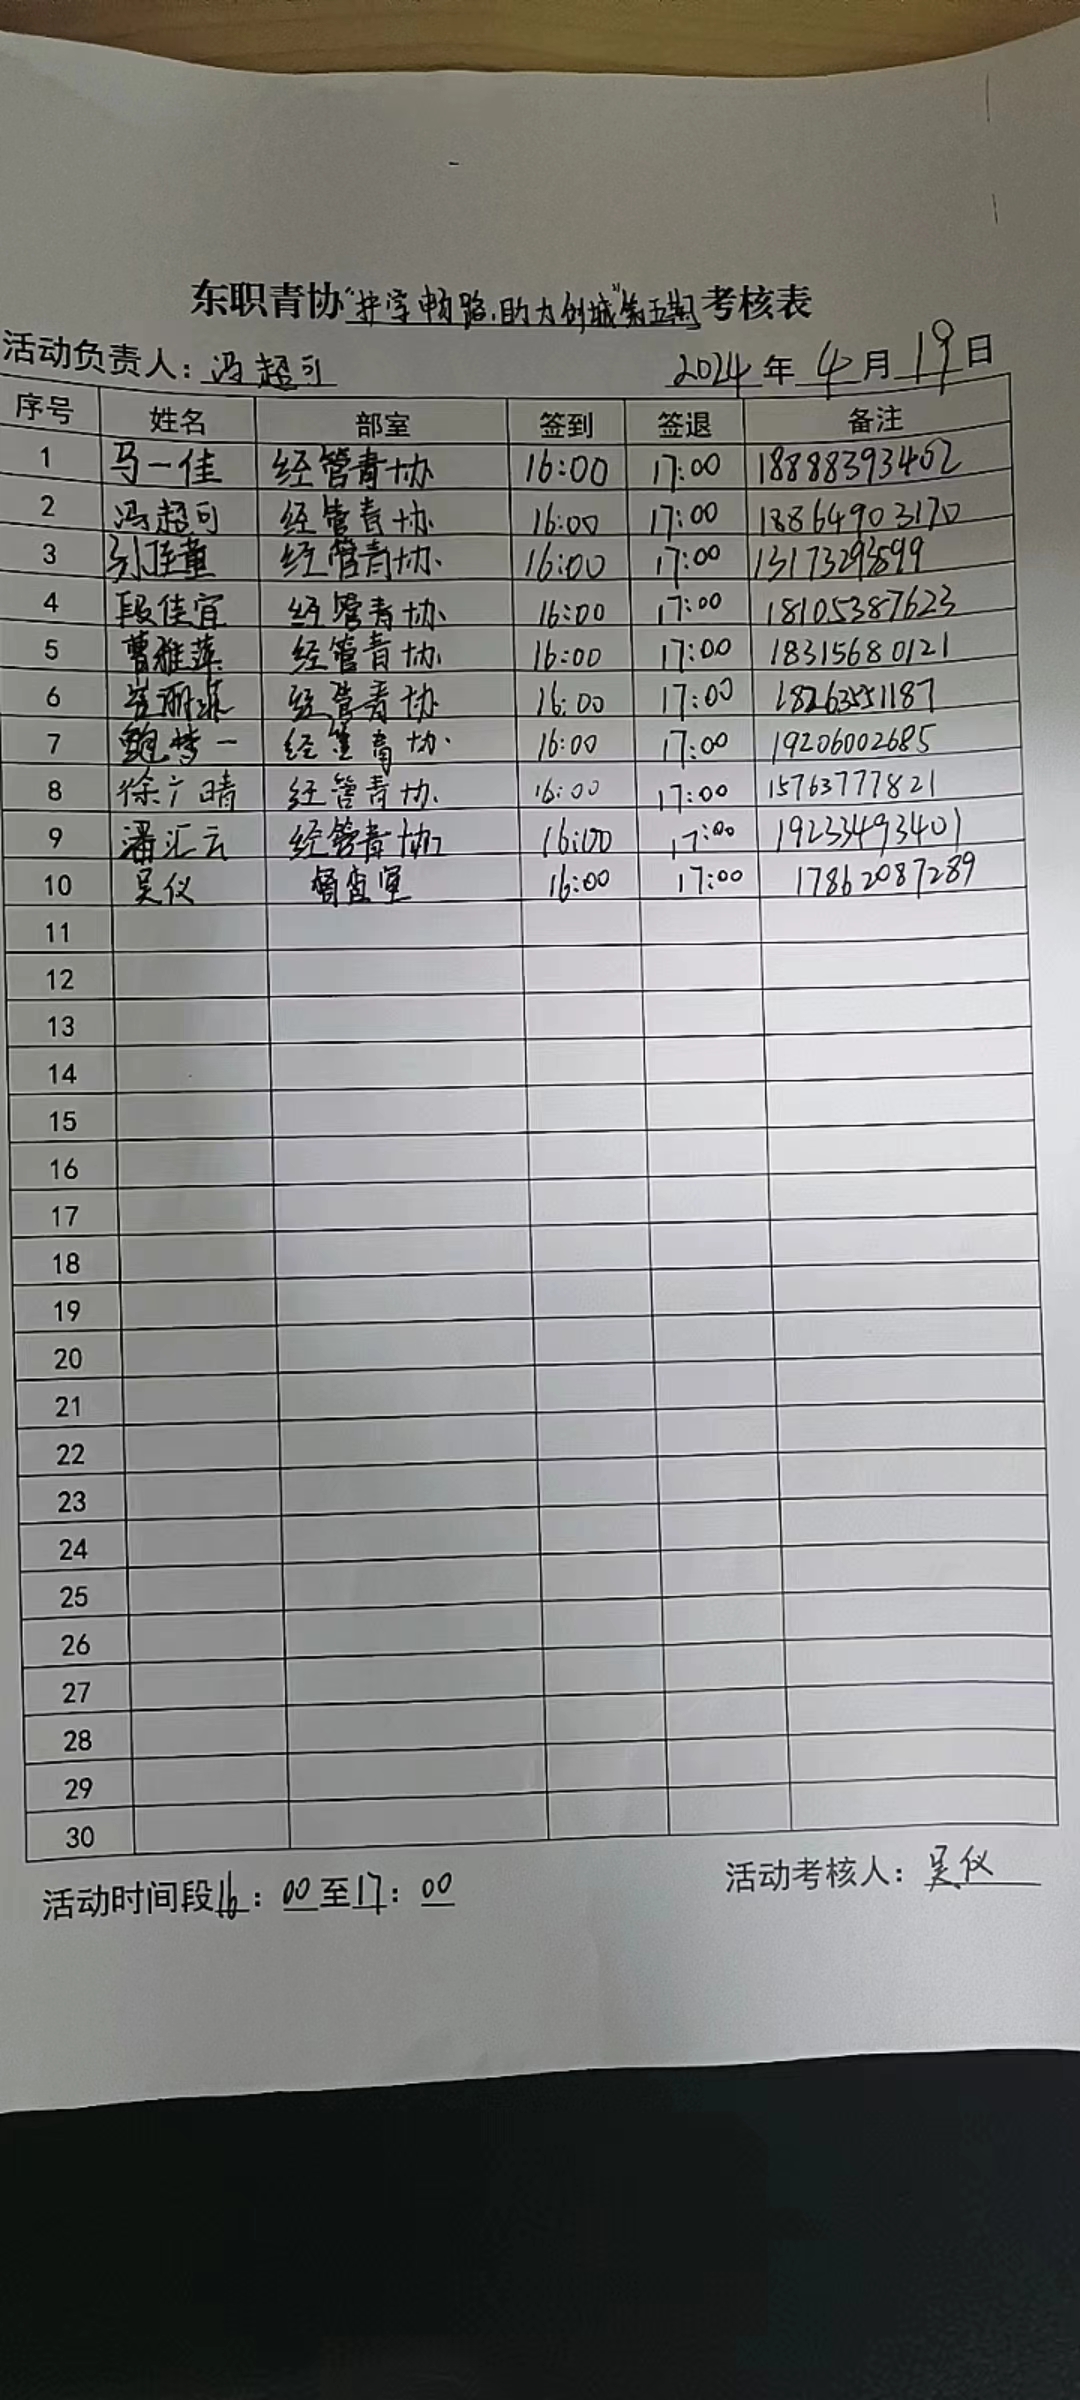 东职青协“护学畅路,助力创城”第五期考核表
活动负责人：冯超可 2024年4月19日
序号 姓名 部室 签到 签退 备注
1 马一佳 经管青协 16:00 17:00 18888393402
2 冯超可 经管青协 16:00 17:00 18864903170
3 刘佳童 经管青协 16:00 17:00 13173293899
4 段佳宜 经管青协 16:00 17:00 18105387623
5 曹雅萍 经管青协 16:00 17:00 18315680121
6 丽 经管青协 16:00 17:00 18263551187
7 鲍梦一 经管青协 16:00 17:00 19206002685
8 徐广晴 经管青协 16:00 17:00 15763777821
9 潘汇云 经管青协 16:00 17:00 19233493401
10 吴仪 督查室 16:00 17:00 17862087289
11
12
13
14
15
16
17
18
19
20
21
22
23
24
25
26
27
28
29
30
活动时间段16：00至17：00 活动考核人：吴仪